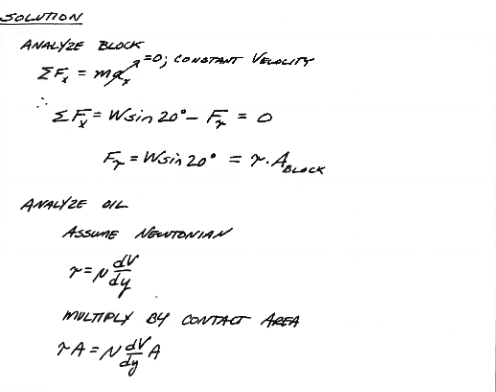 SOLUTION
ANALYZE BLOCK
ΣFₓ = maₓ =0; CONSTANT VELOCITY
∴
ΣFₓ = W sin 20° − F_τ = 0
F_τ = W sin 20° = τ·A_BLOCK
ANALYZE OIL
ASSUME NEWTONIAN
τ = μ dV/dy
MULTIPLY BY CONTACT AREA
τA = μ dV/dy A